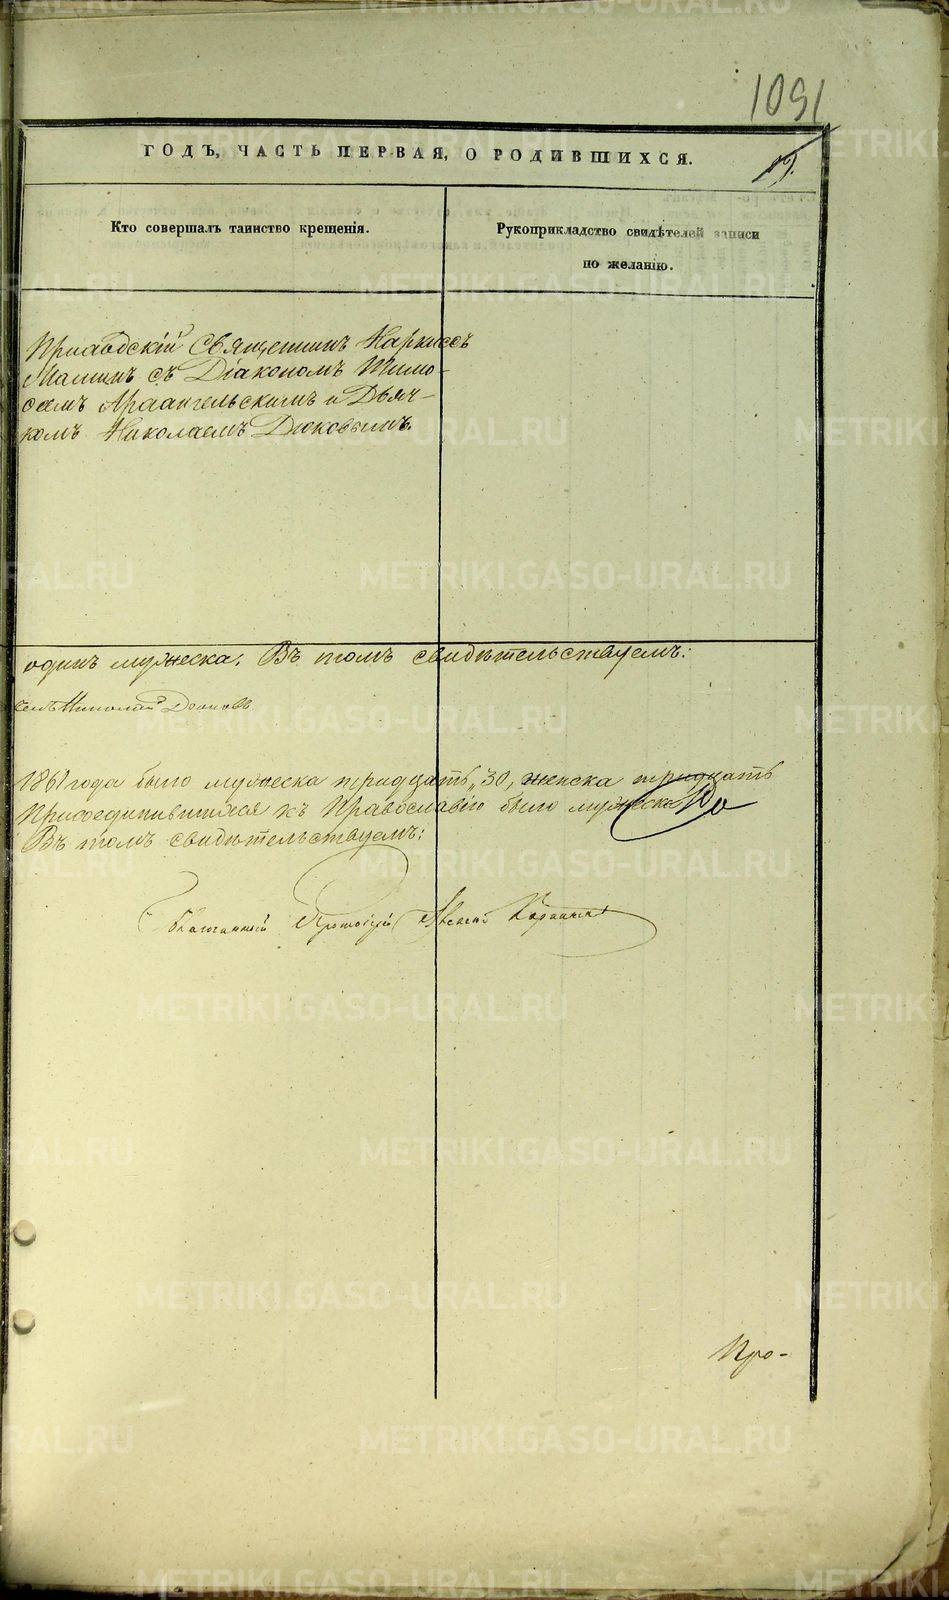 1091
ГОДЪ, ЧАСТЬ ПЕРВАЯ, О РОДИВШИХСЯ.
19.
Кто совершалъ таинство крещенія.
Рукоприкладство свидѣтелей записи
по желанію.
Приходскій Священникъ Наркиссъ
Маминъ съ Діакономъ Тимо-
ѳеемъ Архангельскимъ и Дьяч-
комъ Николаемъ Дюковымъ.
одинъ мужеска. Въ томъ свидѣтельствуемъ:
Николай Дюковъ
1861 года было мужеска тридцать „30, женска тридцать
Присоединившихся къ Православію было мужеска
Въ томъ свидѣтельствуемъ:
Благочинный Протоіерей
Про-
METRIKI.GASO-URAL.RU